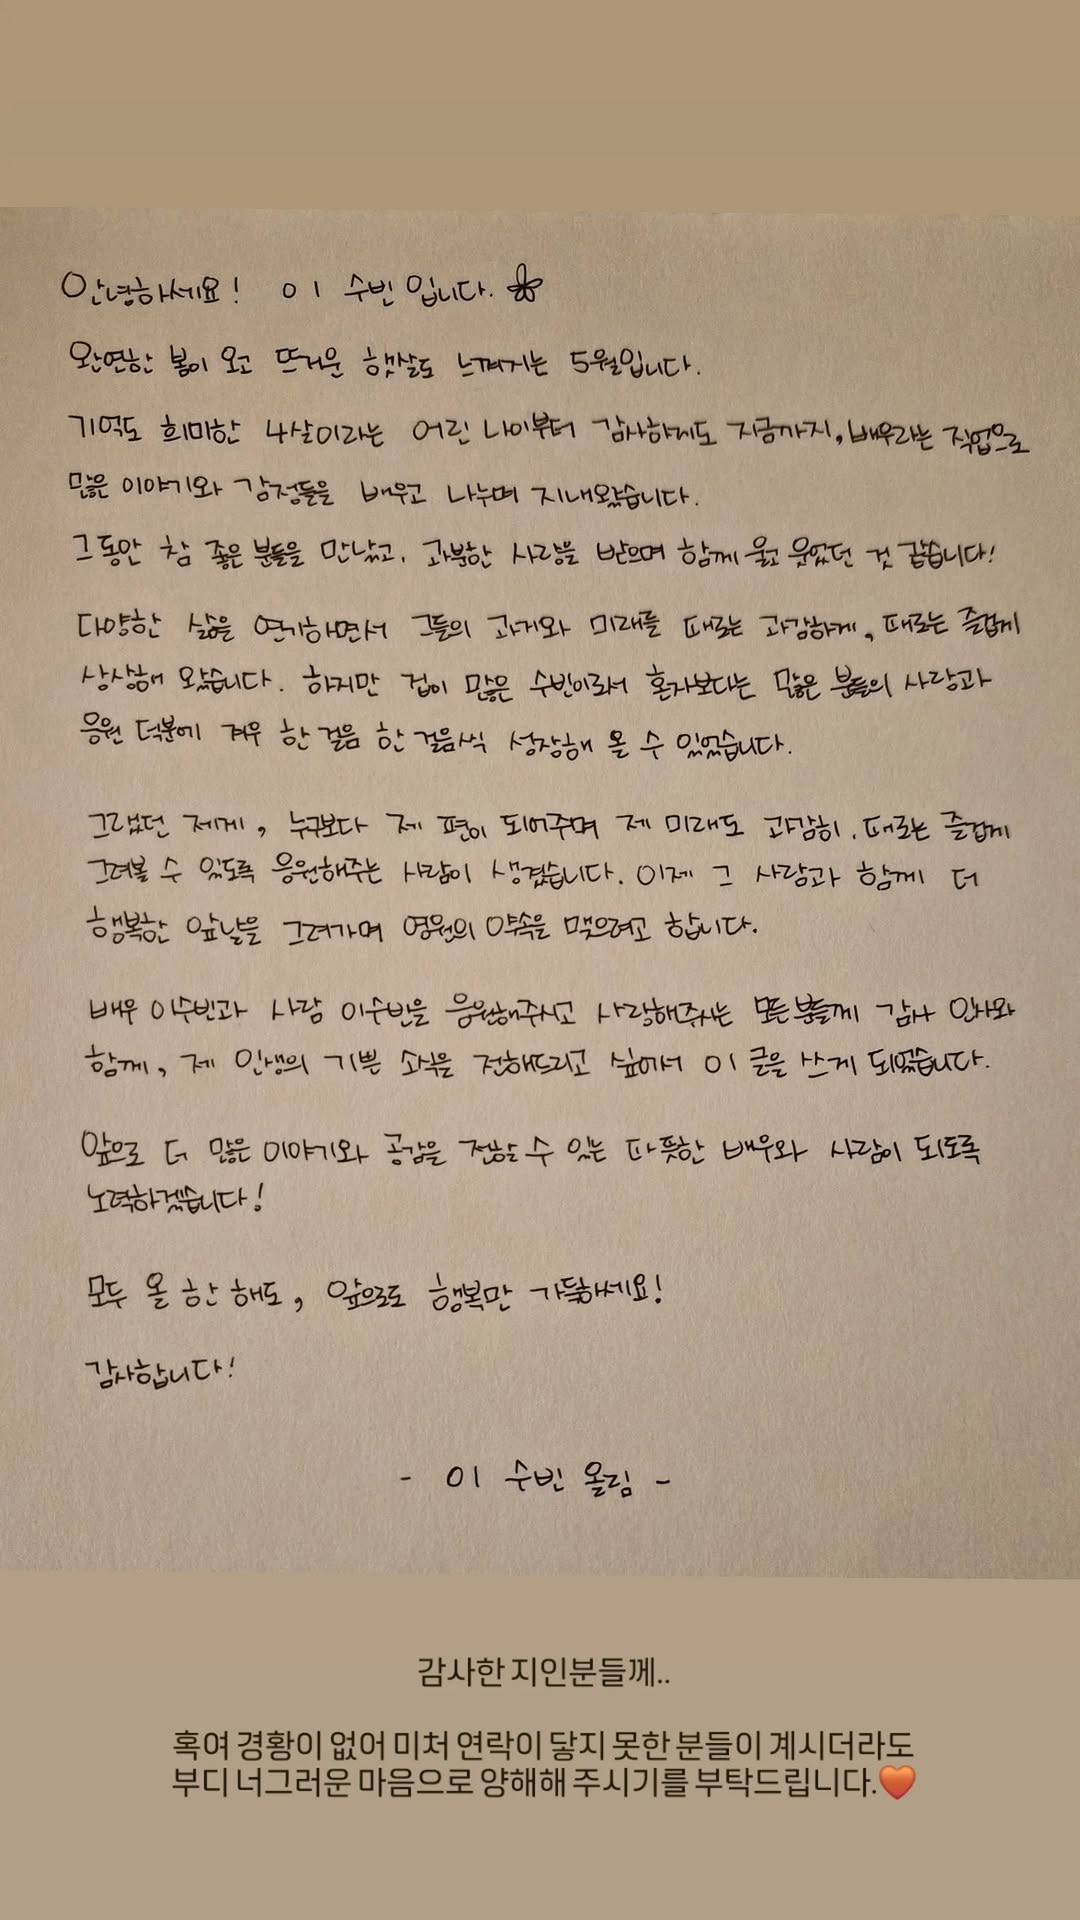 안녕하세요! 이 수빈 입니다.
완연한 봄이 오고 뜨거운 햇살도 느껴지는 5월입니다.
기억도 희미한 4살이라는 어린 나이부터 감사하게도 지금까지, 배우라는 직업으로
많은 이야기와 감정들을 배우고 나누며 지내왔습니다.
그동안 참 좋은 분들을 만났고, 과분한 사랑을 받으며 함께 울고 웃었던 것 같습니다!
다양한 삶을 연기하면서 그들의 과거와 미래를 때로는 과감하게, 때로는 즐겁게
상상해 왔습니다. 하지만 겁이 많은 수빈이라서 혼자보다는 많은 분들의 사랑과
응원 덕분에 겨우 한 걸음 한 걸음씩 성장해 올 수 있었습니다.
그랬던 제게, 누구보다 제 편이 되어주며 제 미래도 과감히, 때로는 즐겁게
그려볼 수 있도록 응원해주는 사람이 생겼습니다. 이제 그 사람과 함께 더
행복한 앞날을 그려가며 영원의 약속을 맺으려고 합니다.
배우 이수빈과 사람 이수빈을 응원해주시고 사랑해주시는 모든분들께 감사 인사와
함께, 제 인생의 기쁜 소식을 전해드리고 싶어서 이 글을 쓰게 되었습니다.
앞으로 더 많은 이야기와 공감을 전할 수 있는 따뜻한 배우와 사람이 되도록
노력하겠습니다!
모두 올 한 해도, 앞으로도 행복만 가득하세요!
감사합니다!
- 이 수빈 올림 -
감사한 지인분들께..
혹여 경황이 없어 미처 연락이 닿지 못한 분들이 계시더라도
부디 너그러운 마음으로 양해해 주시기를 부탁드립니다.❤️